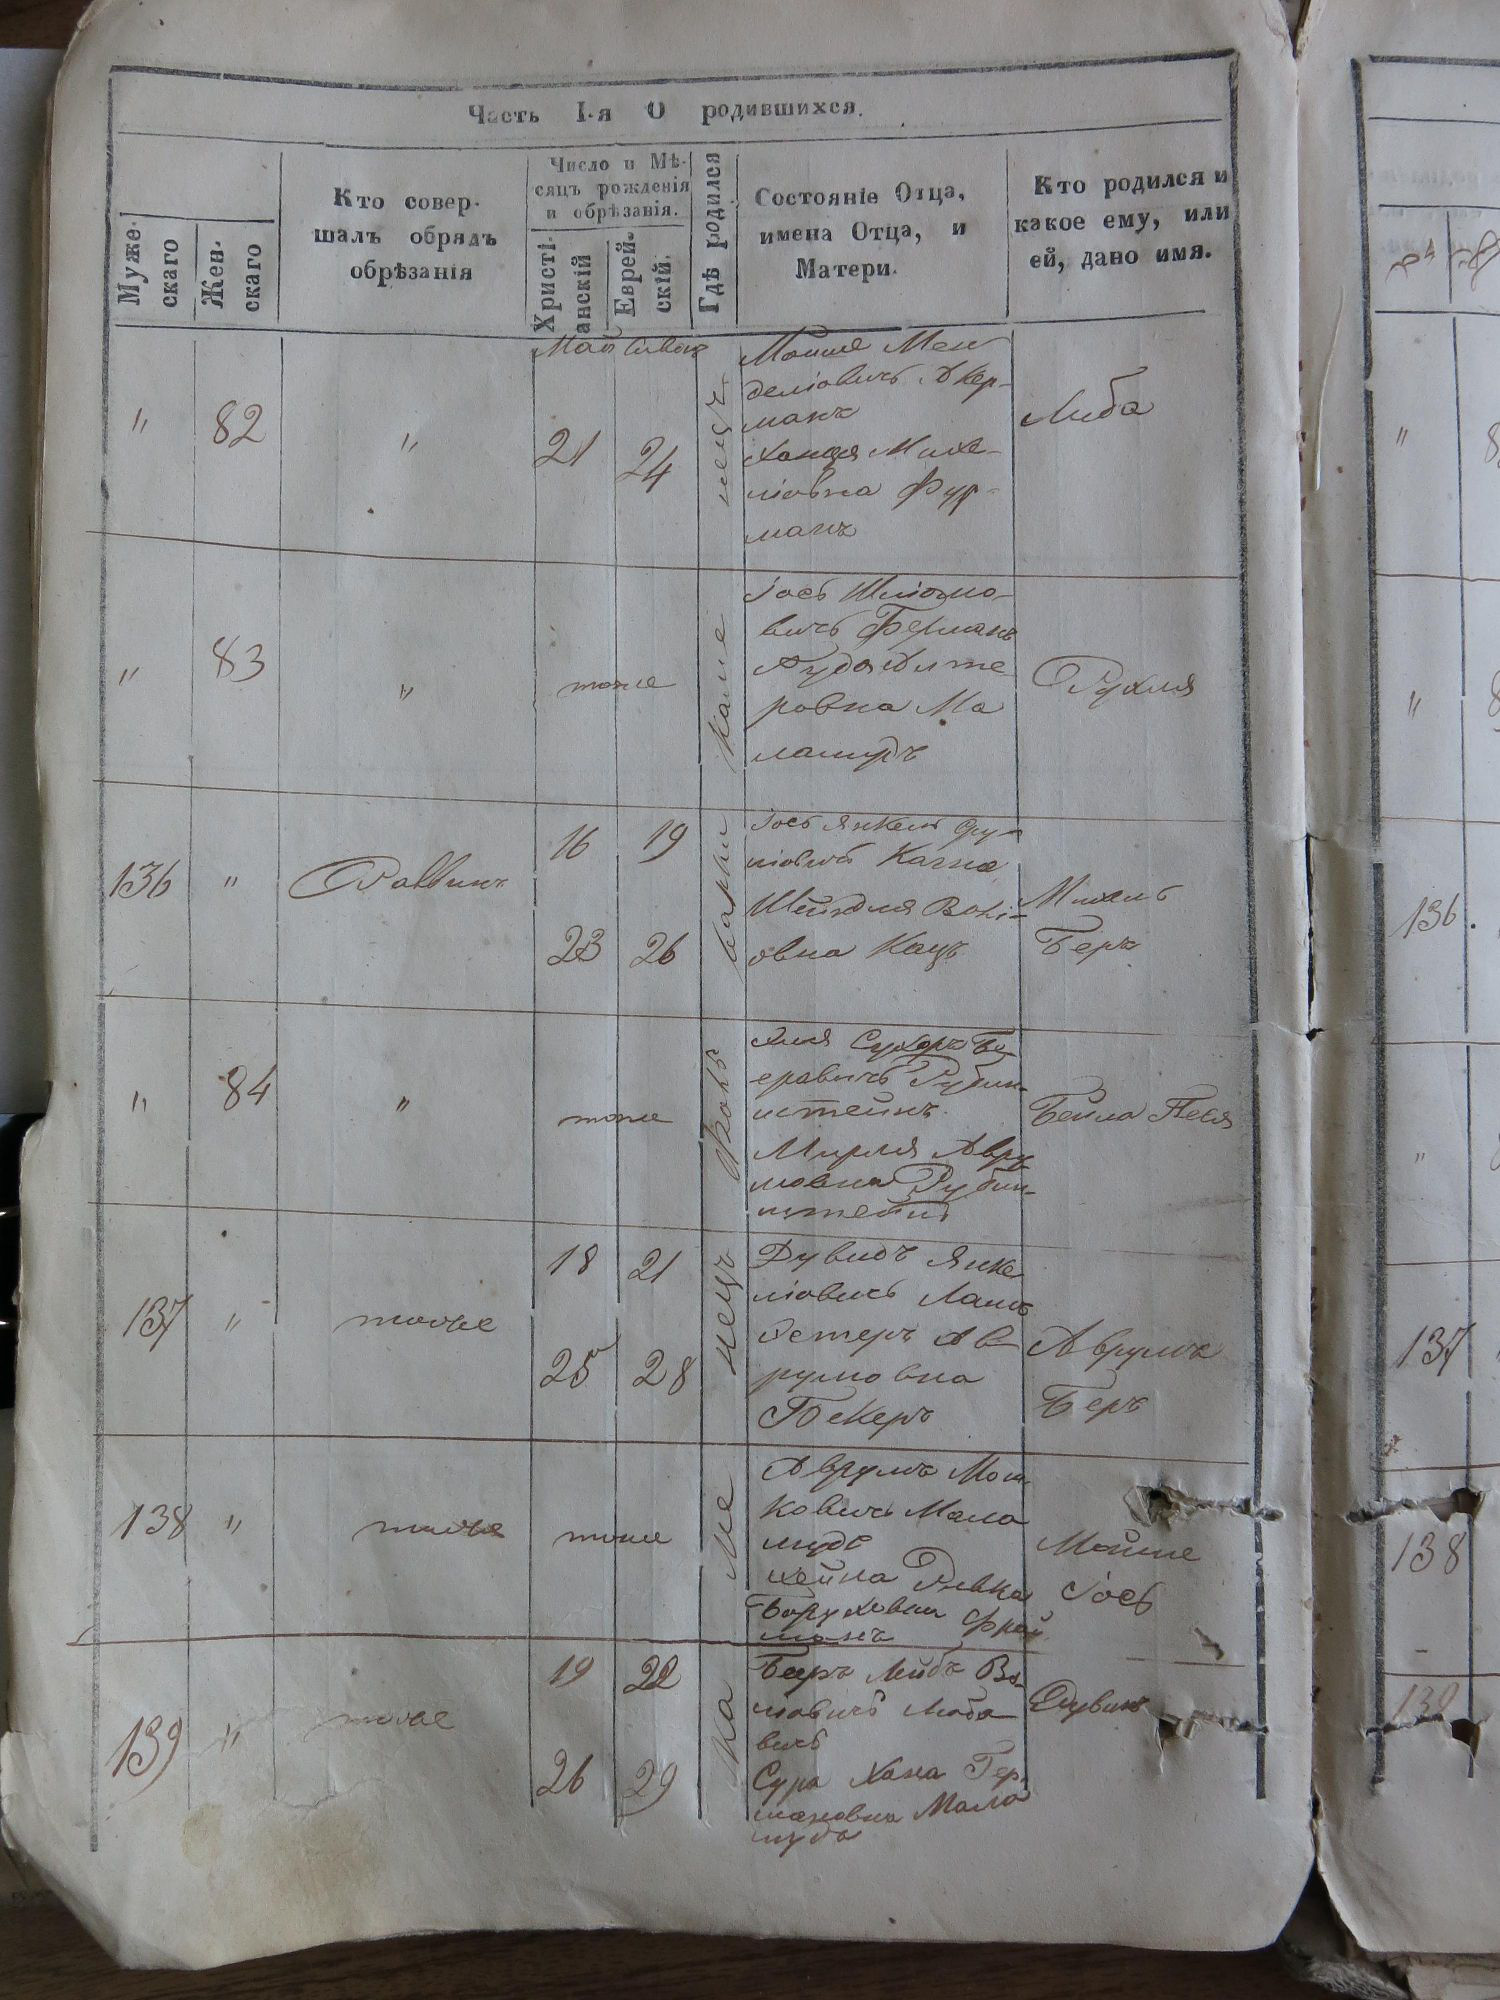 Часть I-я О родившихся.
Муже-
скаго
Жен-
скаго
Кто совер-
шалъ обрядъ
обрѣзанія
Число и Мѣ-
сяцъ рожденія
и обрѣзанія.
Христі-
анскій
Еврей-
скій.
Гдѣ родился
Состояніе Отца,
имена Отца, и
Матери.
Кто родился и
какое ему, или
ей, дано имя.
Май Сивон
" 82 " 21 24
Мошке Мен
деліовичъ Акер-
манъ
Михе-
ліовна Фур-
манъ
Либа
" 83 " тоже
Іось Шліомо-
вичъ Берманъ
ровна Ма
ламудъ
Рухля
136 " Раввинъ
16 19
23 26
Іось Янкель
Шейндля Волі-
овна Кацъ
Михель
Беръ
" 84 " тоже
Сухеръ Бе-
еровичъ Рубин-
штейнъ.
Мирля Авру-
мовна Рубин-
штейнъ
Бейла Песя
137 " тоже
18 21
25 28
Дувидъ Янке-
ліовичъ
Эстеръ Ав-
румовна
Пекеръ
Аврумъ
Беръ
138 " тоже тоже
Аврумъ Мош-
ковичъ Мала
мудъ
Хейна Ривка
Боруховна Фрей
манъ
Мошке
Іось
139 " тоже
19 22
26 29
Беръ Лейбъ Во-
ліовичъ Либо
вичъ
Сура Хана Гер-
шковна Мала
мудъ
Дувидъ
Каменецъ
136.
137
138
139